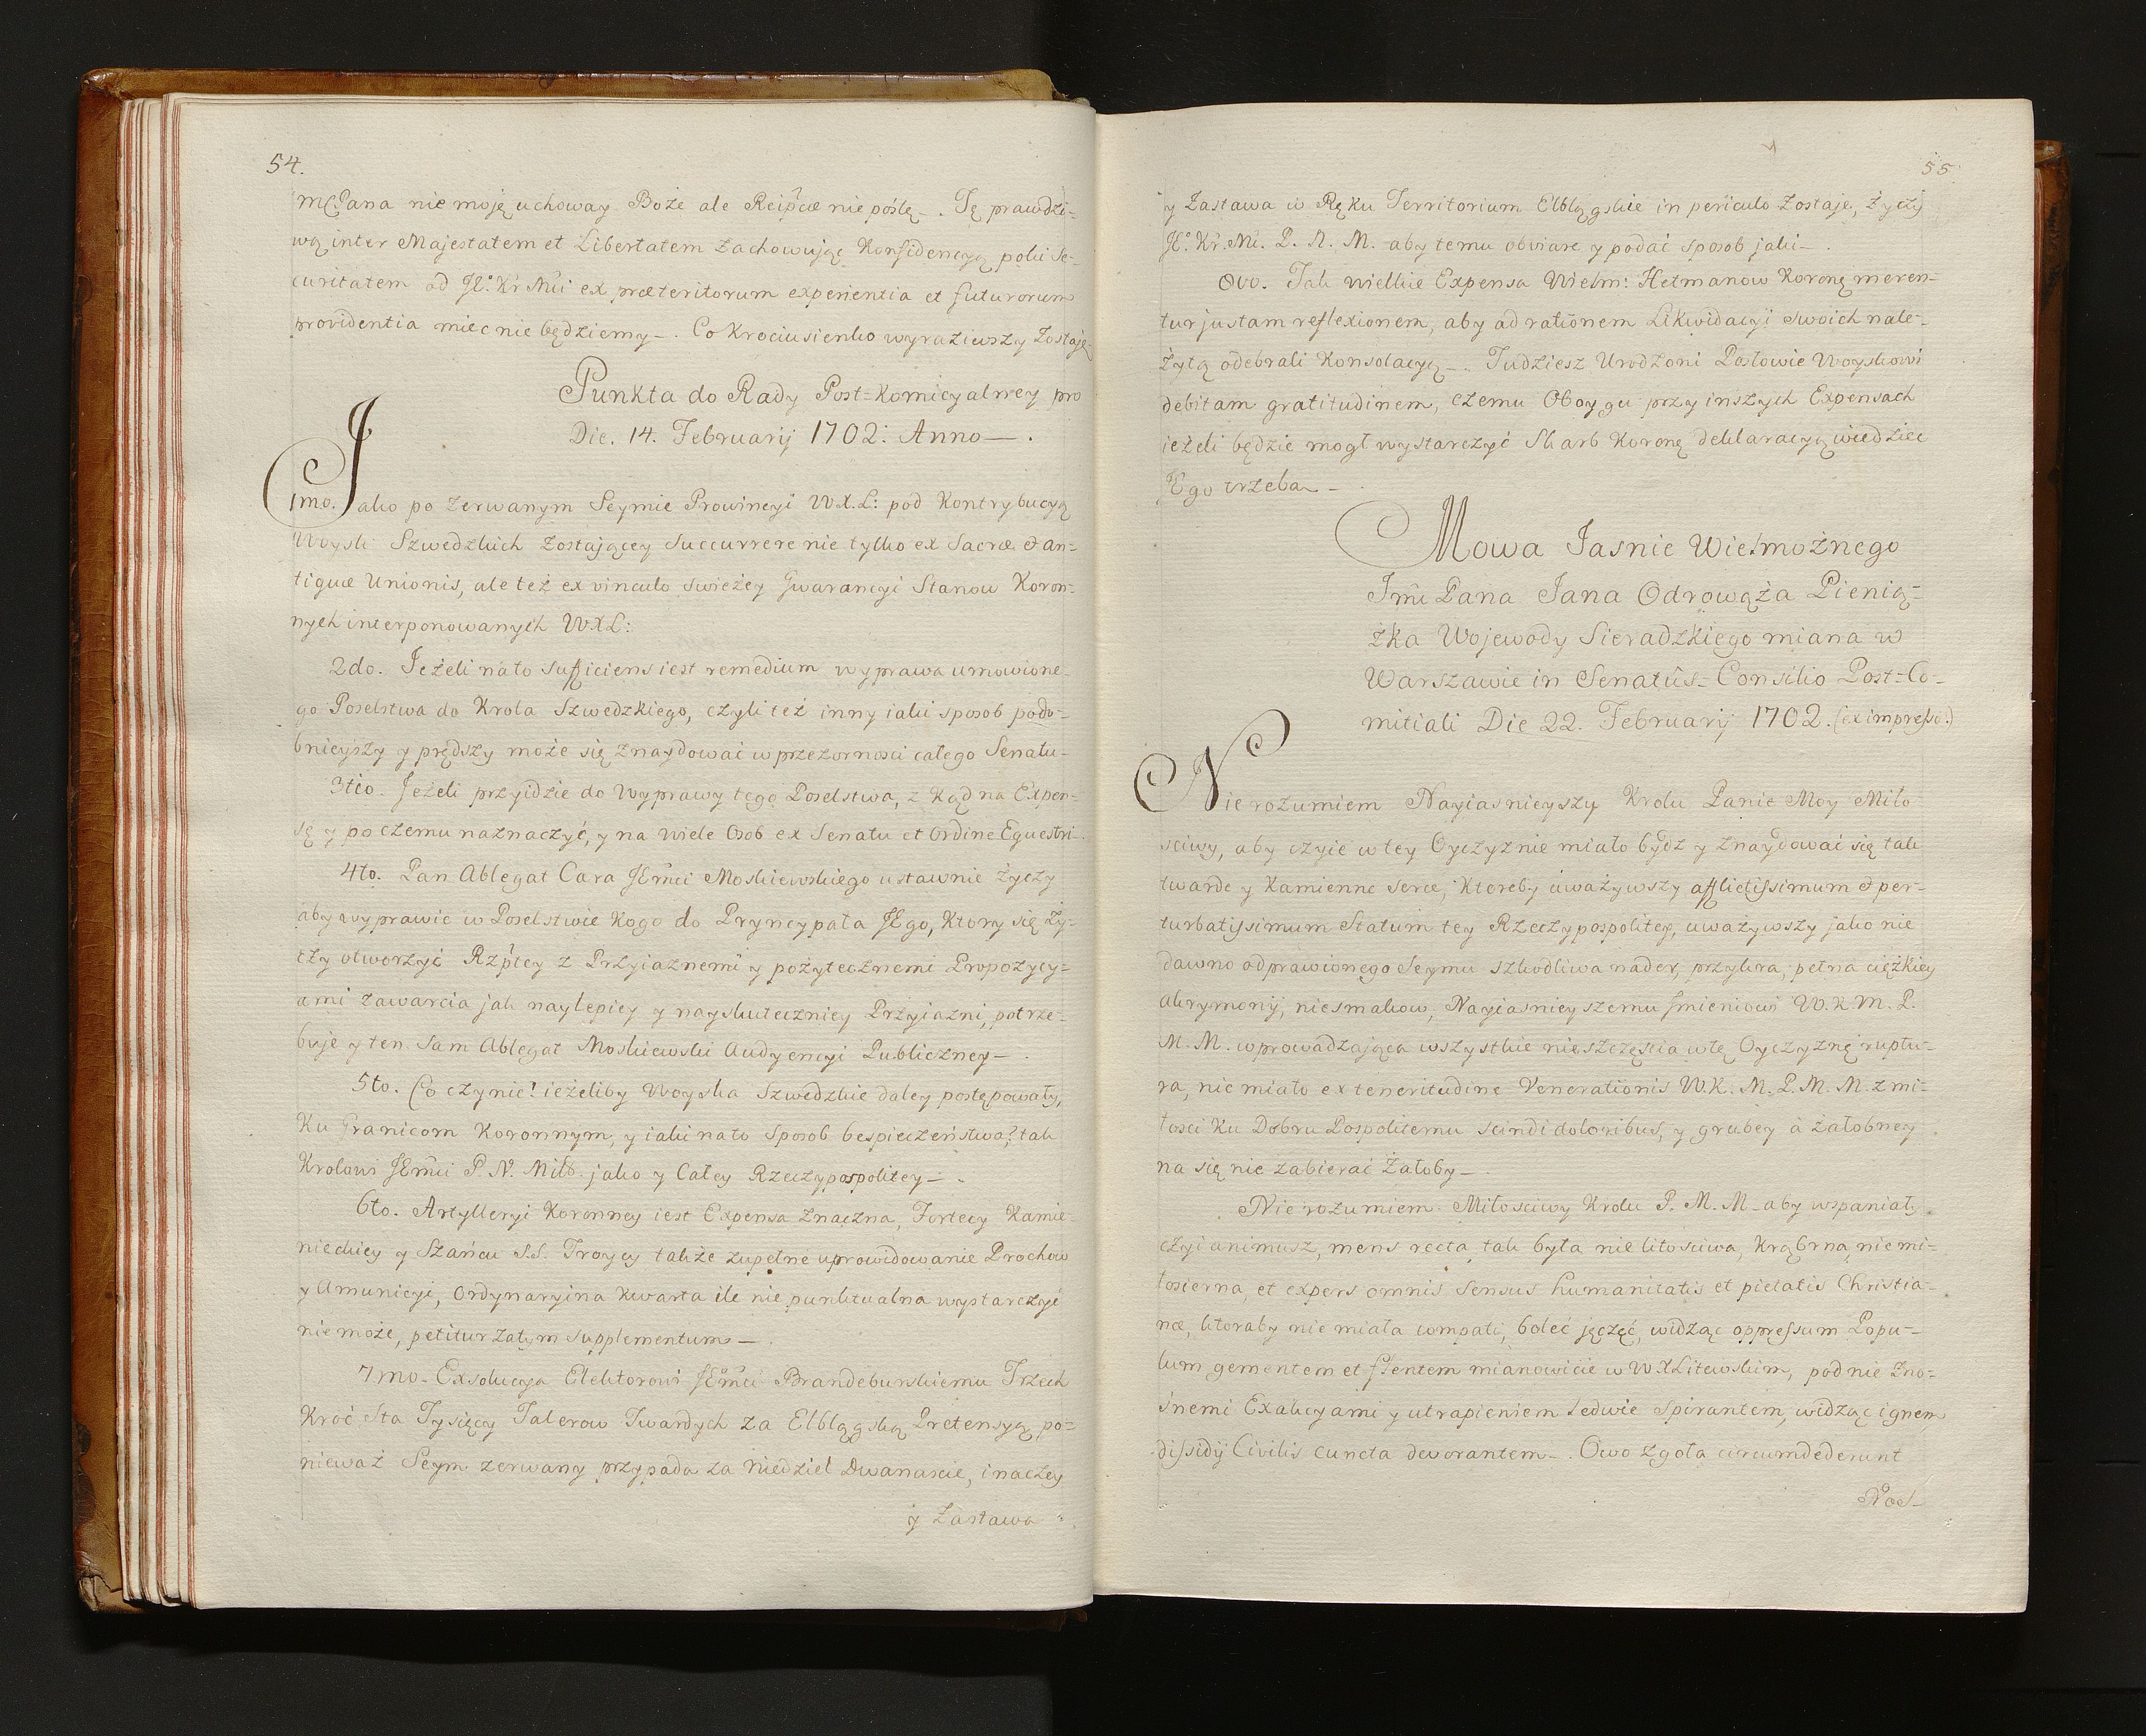 54.
MCPana nie moję uchoway Boże ale Reipcæ nie poślę. Tę prawdzi-
wą inter Majestatem et Libertatem zachowując Konfidencyą poki Se-
curitatem od JEo. Kr Mci ex præteritorum experientia et futurorum
providentia miec nie będziemy. Co krociusienko wyraziwszy zostaję.
Punkta do Rady Post-Komicyalney pro
Die. 14. Februarij 1702: Anno.
1mo. Jako po zerwanym Seymie Prowincyi W.X.L: pod Kontrybucyą
Woysk Szwedzkich zostającey succurrere nie tylko ex Sacræ & an-
tiquæ Unionis, ale też ex vinculo swieżey Gwarancyi Stanow Koron-
nych interponowanych W.X.L:
2do. Jeżeli na to sufficiens iest remedium wyprawa umowione-
go Poselstwa do Krola Szwedzkiego, czyli też inny iaki sposob podo-
bnieyszy y prędszy może się znaydować w przezornosci całego Senatu-
3tio. Jeżeli przyidzie do Wyprawy tego Poselstwa, z kąd na Expen-
sę y po czemu naznaczyć, y na wiele Osob ex Senatu et Ordine Equestri.
4to. Pan Ablegat Cara JEmci Moskiewskiego ustawnie życzy
aby wyprawic w Poselstwie kogo do Pryncypała JEgo, ktory się ży-
czy otworzyć Rzptey z Przyiaznemi y pożytecznemi Propozycy-
ami zawarcia jak naylepiey y nayskuteczniey Przyiazni, potrze-
buje y ten sam Ablegat Moskiewski Audyencyi Publiczney.
5to. Co czynic! ieżeliby Woyska Szwedzkie daley postępowały,
ku Granicom Koronnym, y iaki na to sposob bespieczeństwa? tak
Krolowi JEmci P. N. Miło. jako y Całey Rzeczypospolitey.
6to. Artylleryi Koronney iest Expensa znaczna, Fortecy Kamie-
nieckiey y Szańcu S.S. Troycy także zupełne uprowidowanie Prochow
y Amunicyi, Ordynaryina Kwarta ile nie punktualna wystarczyć
nie może, petitur zatym supplementum.
7mo. Exolucya Elektorowi JEmci Brandeburskiemu Trzech
Kroć Sta Tysięcy Talerow Twardych za Elblągską Pretensyą po-
nieważ Seym zerwany przypada za Niedziel Dwanascie, inaczey
y Zastawa
55
y Zastawa w Ręku Territorium Elblągskie in periculo zostaje, życzy
JEo. Kr. Mi. P. N. M. aby temu obviare y podać sposob jaki.
Ovo. Tak wielkie Expensa Wielm: Hetmanow Koronę meren-
tur justam reflexionem, aby ad rationem Likwidacyi swoich nale-
żytą odebrali Konsolacyą. Tudziesz Urodzoni Posłowie Woyskowi
debitam gratitudinem, czemu Oboygu przy inszych Expensach
ieżeli będzie mogł wystarczyć Skarb Koronę deklaracyą wiedziec
JEgo trzeba.
Mowa Jasnie Wielmożnego
Jmci Pana Jana Odrowąża Pienią-
żka Wojewody Sieradzkiego miana w
Warszawie in Senatûs-Consilio Post-Co-
mitiali Die 22. Februarij 1702. (ex impresso.)
Nie rozumiem Nayiasnieyszy Krolu Panie Moy Miło-
sciwy, aby czyie w tey Oyczyznie miało bydz y znaydować się tak
twarde y kamienne serce, ktoreby uważywszy afflictissimum & per-
turbatissimum Statum tey Rzeczypospolitey, uważywszy jako nie
dawno odprawionego Seymu szkodliwa nader, przykra, pełna ciężkiey
akrymonij, niesmakow, Nayiasnieyszemu Jmieniowi W. K. M. P.
M. M. wprowadzająca wszystkie nieszczęscia w tę Oyczyznę ruptu-
ra, nie miało ex teneritudine Venerationis W. K. M. P. M. M. z mi-
łosci ku Dobru Pospolitemu scindi doloribus, y grubey à żałobney
na się nie zabierać Żałoby.
Nie rozumiem Miłosciwy Krolu P. M. M. aby wspaniały
czyi animusz, mens recta tak była nie litosciwa, krąbrna, niemi-
łosierna, et expers omnis sensus humanitatis et pietatis Christia-
næ, ktoraby nie miała compati, boleć jęczęć, widząc oppressum Popu-
lum gementem et flentem mianowicie w W.X Litewskim, pod nie zno-
śnemi Exakcyami y utrapieniem ledwie spirantem, widząc ignem
dissidij Civilis cuncta devorantem. Owo zgoła circumdederunt
Nos